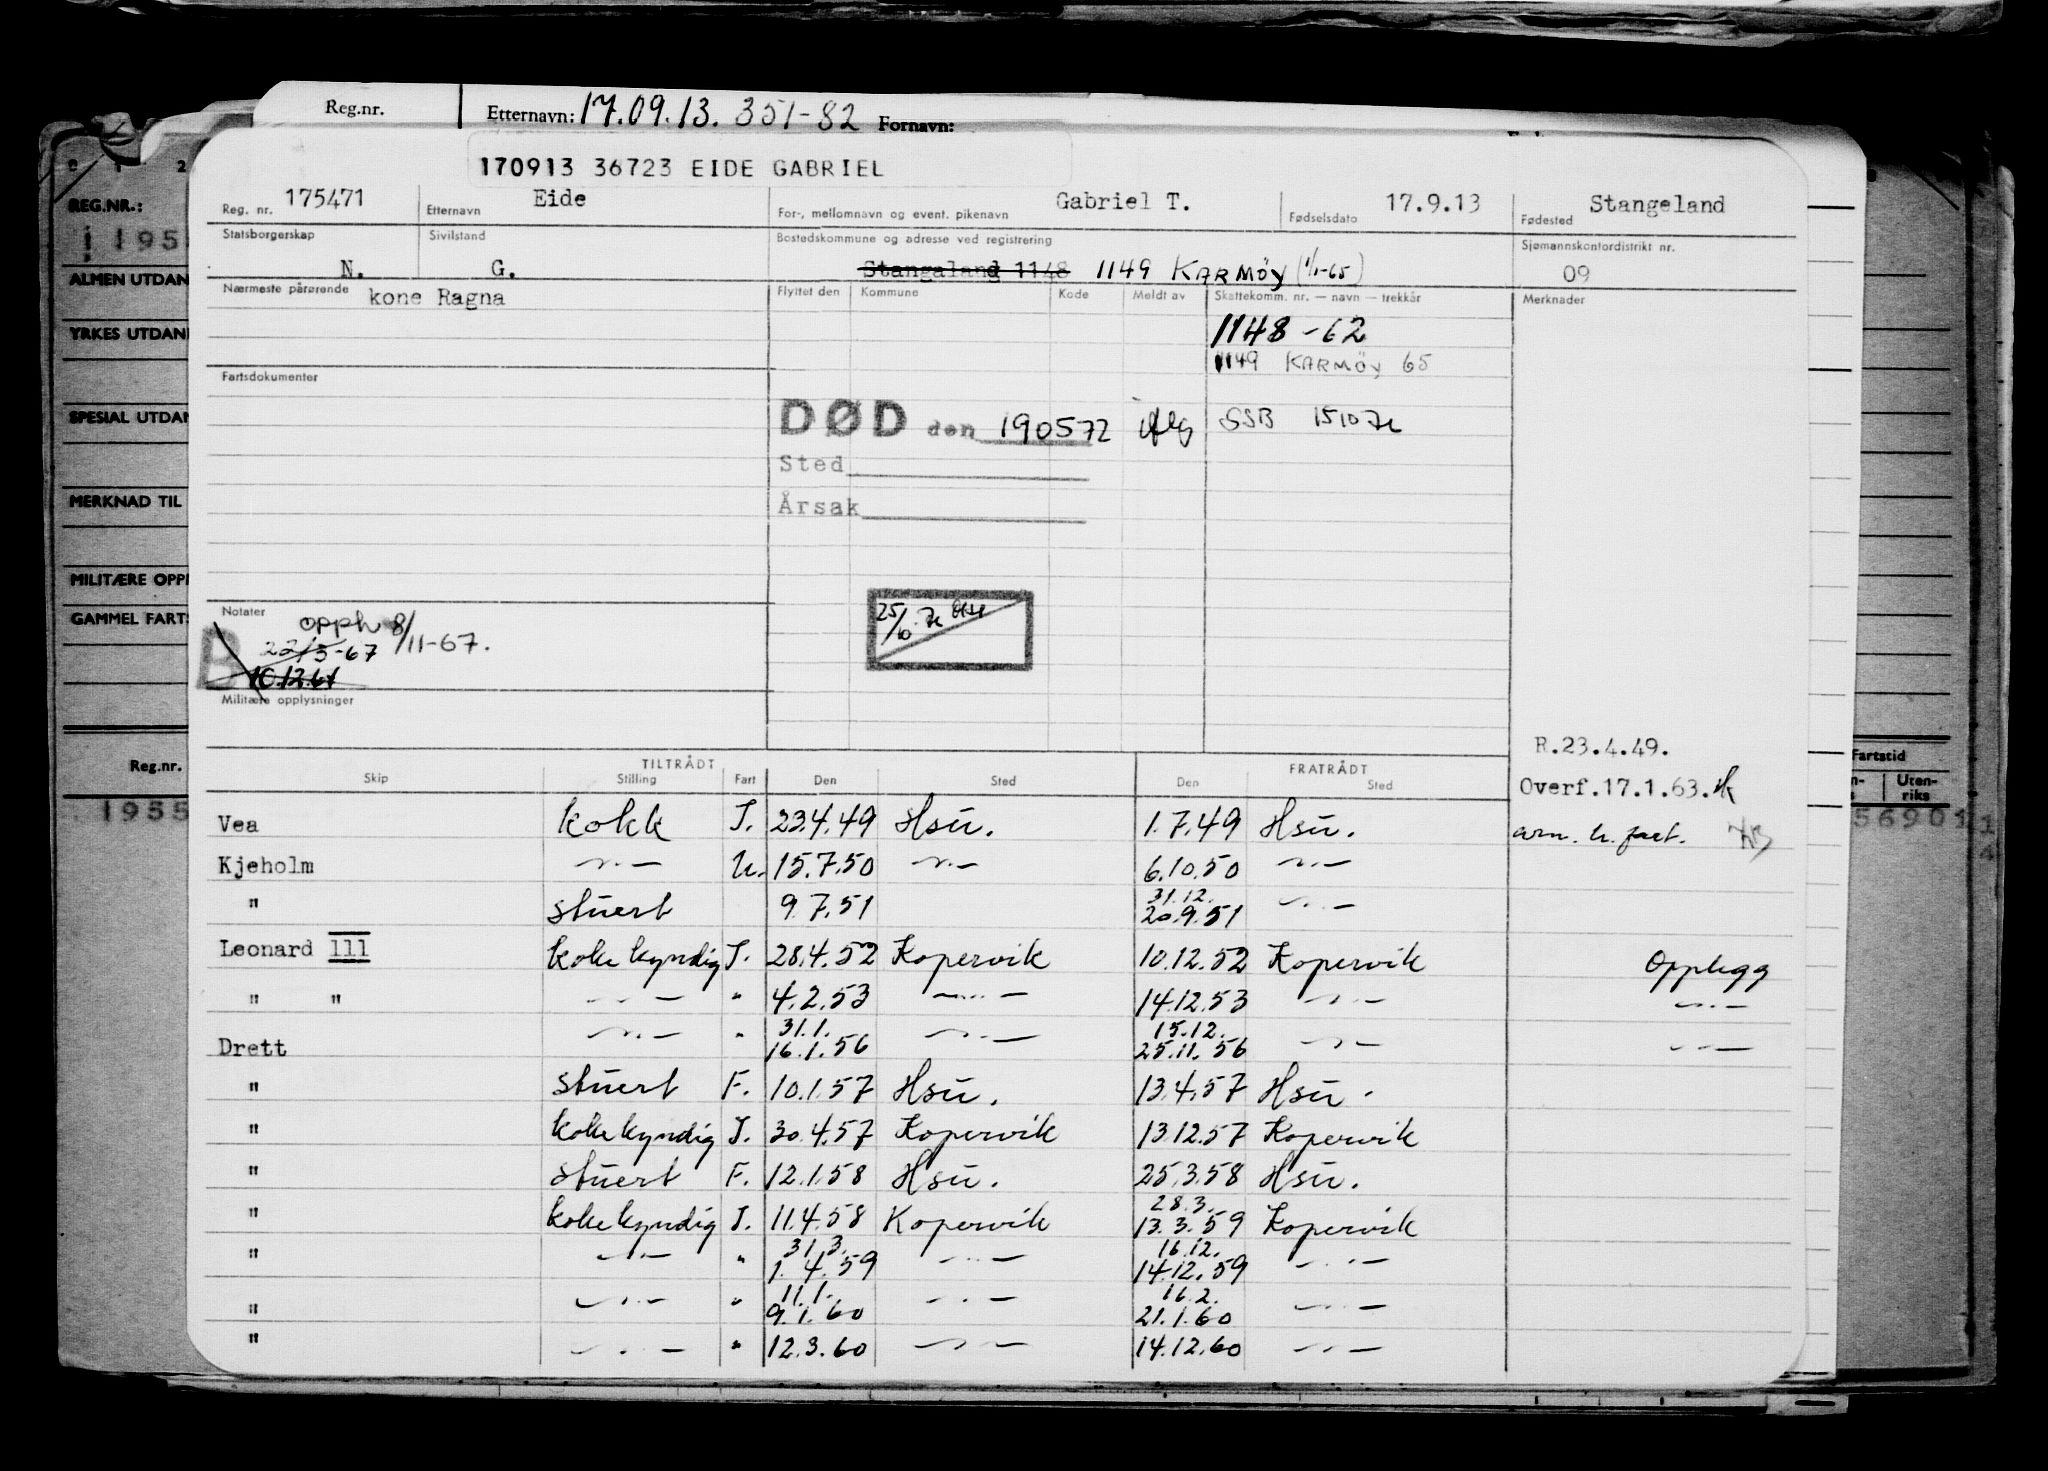 Reg.nr. Etternavn: 17.09.13. 351-82 Fornavn:
170913 36723 EIDE GABRIEL
Reg. nr. 175471 Etternavn Eide For-, mellomnavn og event. pikenavn Gabriel T. Fødselsdato 17.9.13 Fødested Stangeland
Statsborgerskap N. Sivilstand G. Bostedskommune og adresse ved registrering Stangaland 1148 1149 KARMÖY (1/1-65) Sjømannskontordistrikt nr. 09
Nærmeste pårørende kone Ragna Flyttet den Kommune Kode Meldt av Skattekomm. nr. — navn — trekkår Merknader
1148 - 62
1149 KARMÖY 65
Fartsdokumenter
DØD den 190572 iflg SSB 151072
Sted
Årsak
Notater
opph 8/11-67.
22/3-67
10.12.61
B
25/10-72
Militære opplysninger
R.23.4.49.
Overf.17.1.63.
TILTRÅDT FRATRÅDT
Skip Stilling Fart Den Sted Den Sted
Vea kokk I. 23.4.49 Hsu. 1.7.49 Hsu. arn. u. fart.
Kjeholm —"— U. 15.7.50 —"— 6.10.50 —"—
" stuert 9.7.51 31.12. 20.9.51 —"—
Leonard III kokekyndig I. 28.4.52 Kopervik 10.12.52 Kopervik Opplegg
" " —"— " 4.2.53 —"— 14.12.53 —"— —"—
Drett —"— " 31.1. 16.1.56 —"— 15.12. 25.11.56 —"— —"—
" stuert F. 10.1.57 Hsu. 13.4.57 Hsu.
" kokekyndig I. 30.4.57 Kopervik 13.12.57 Kopervik
" stuert F. 12.1.58 Hsu. 25.3.58 Hsu.
" kokekyndig I. 11.4.58 Kopervik 28.3. 13.3.59 Kopervik
" —"— " 31.3. 1.4.59 —"— 16.12. 14.12.59 —"—
" —"— " 11.1. 9.1.60 —"— 16.2. 21.1.60 —"—
" —"— " 12.3.60 —"— 14.12.60 —"—
REG.NR.:
ALMEN UTDAN
YRKES UTDAN
SPESIAL UTDAN
MERKNAD TIL
MILITÆRE OPPL
GAMMEL FARTS
Reg.nr.
1955
Fartstid
Uten-
riks
56901